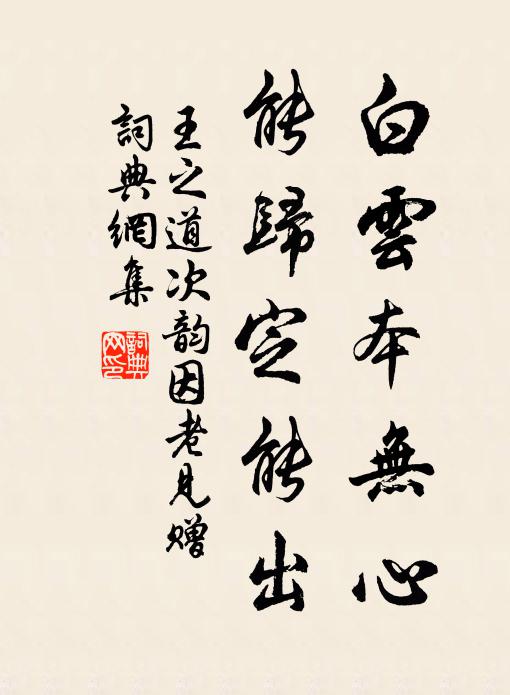 白雲本無心
能歸定能出
王之道次韵因老見赠
詞典網集
詞典网印